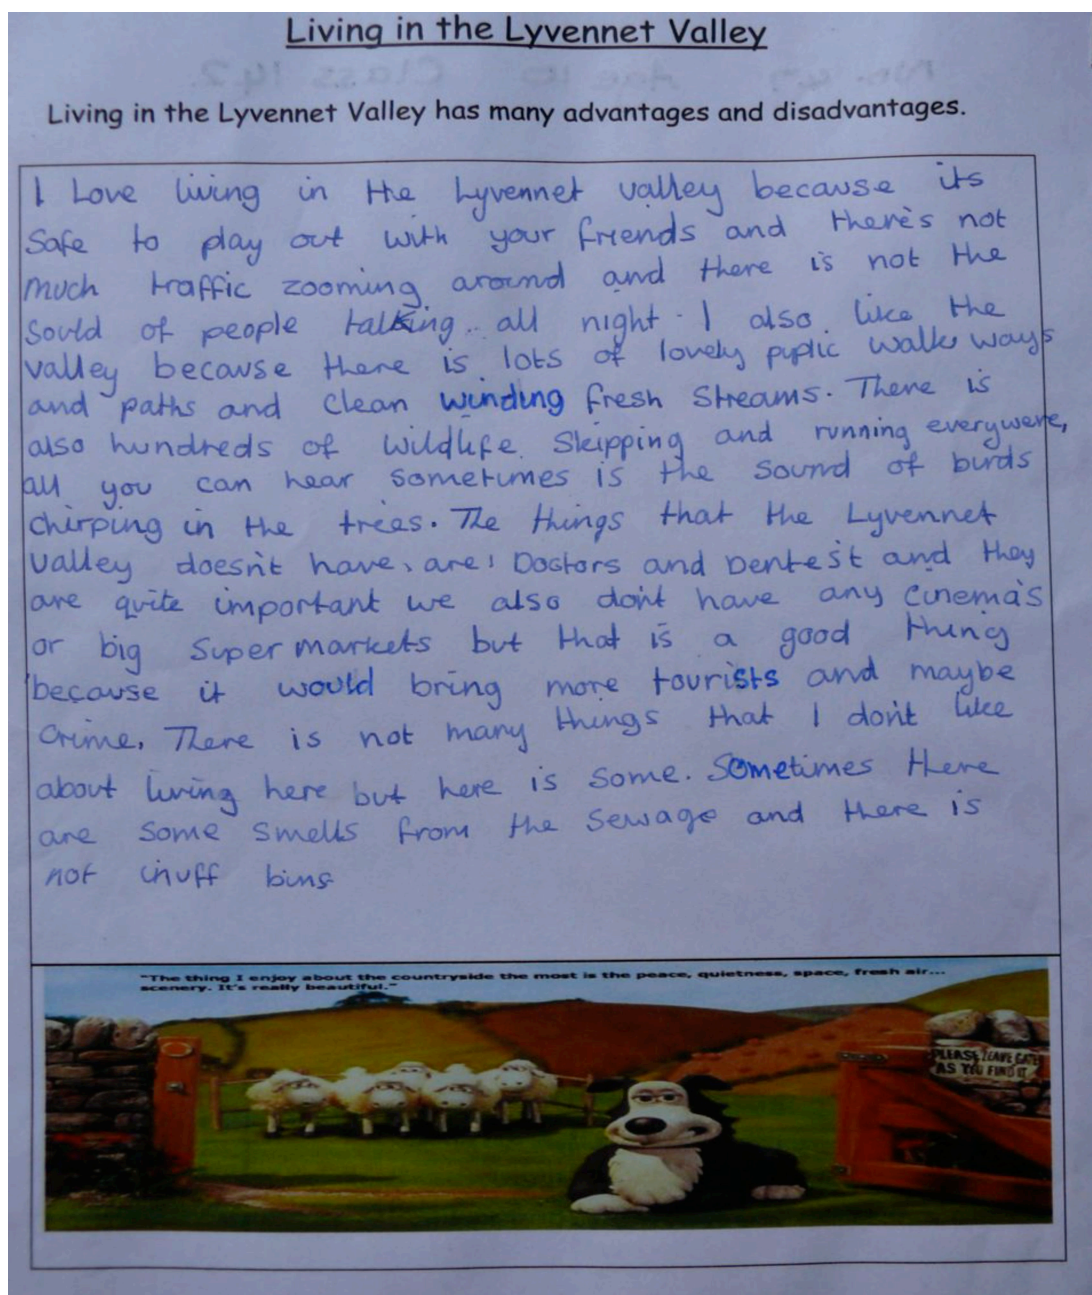 Living in the Lyvennet Valley
Living in the Lyvennet Valley has many advantages and disadvantages.
I Love living in the Lyvennet valley because its
safe to play out with your friends and there's not
much traffic zooming around and there is not the
sould of people talking all night. I also like the
valley because there is lots of lovely puplic walk ways
and paths and clean winding fresh streams. There is
also hundreds of wildlife skipping and running everywere,
all you can hear sometimes is the sound of birds
chirping in the trees. The things that the Lyvennet
valley doesn't have, are! Doctors and Dentest and they
are quite important we also don't have any cinema's
or big Super markets but that is a good thing
because it would bring more tourists and maybe
crime. There is not many things that I don't like
about living here but here is some. Sometimes there
are some smells from the sewage and there is
not inuff bins
"The thing I enjoy about the countryside the most is the peace, quietness, space, fresh air...
scenery. It's really beautiful."
PLEASE LEAVE GATE
AS YOU FIND IT